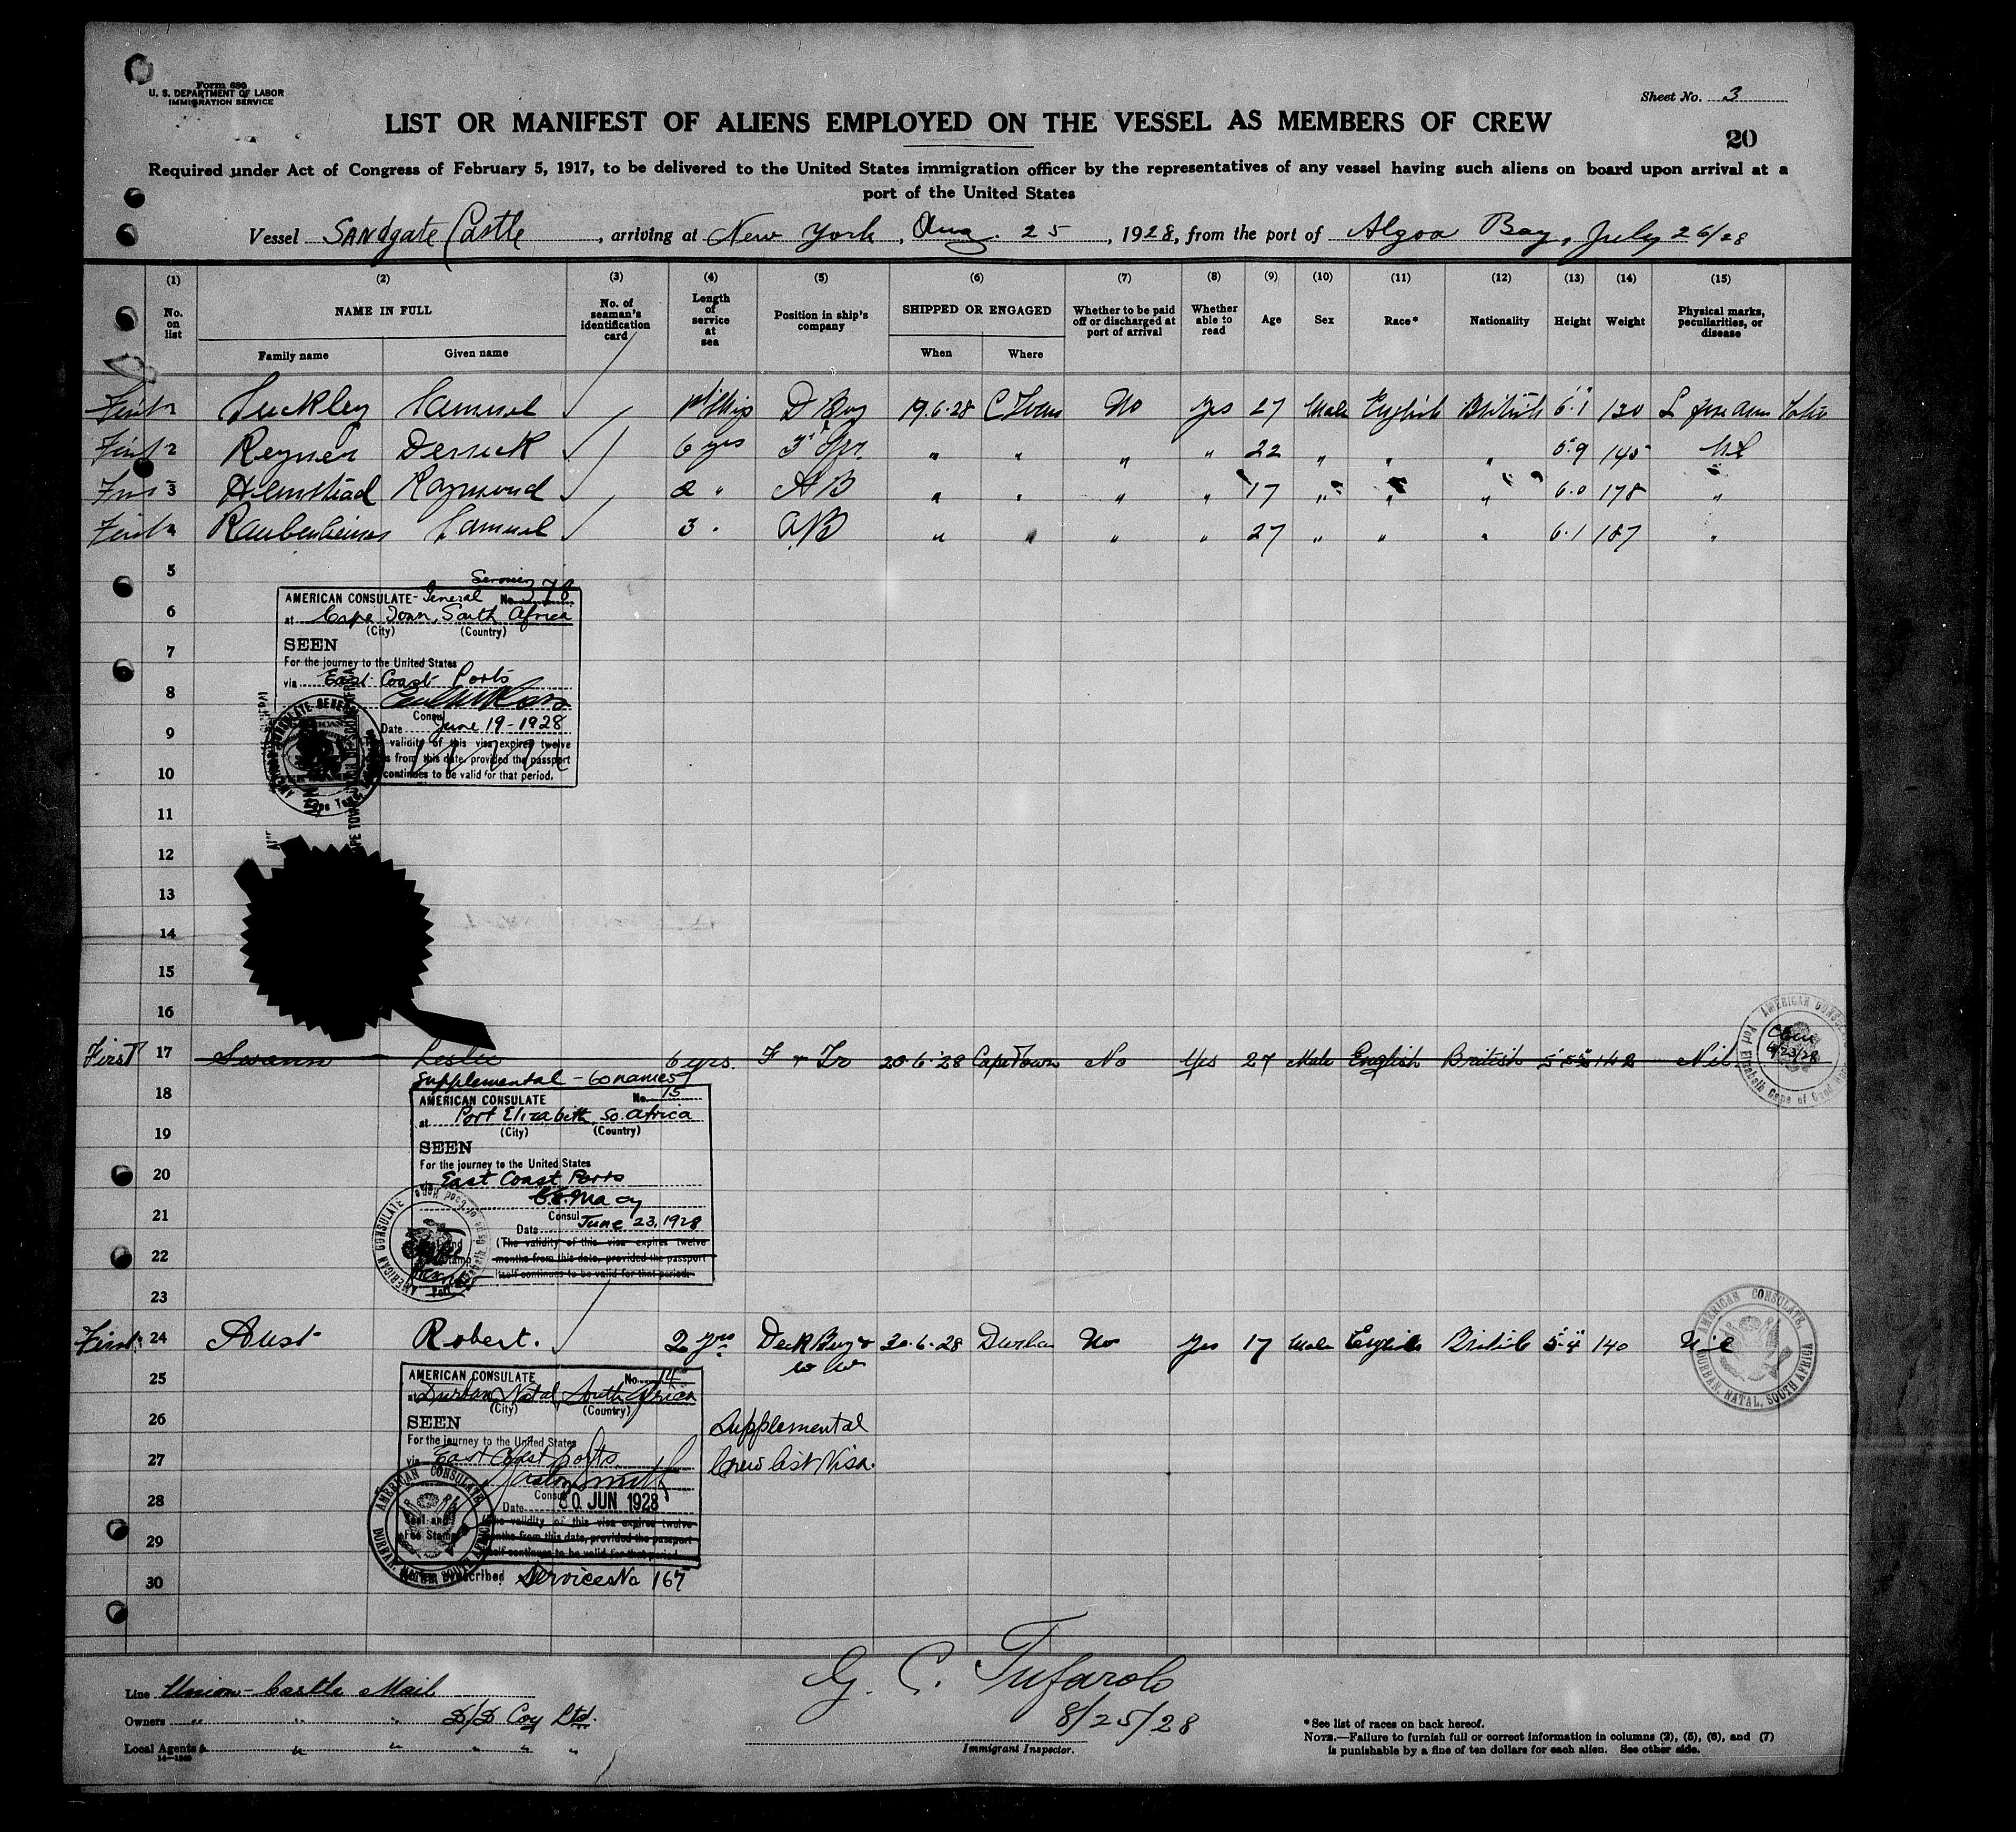 Form 680
U. S. DEPARTMENT OF LABOR
IMMIGRATION SERVICE
Sheet No. 3
LIST OR MANIFEST OF ALIENS EMPLOYED ON THE VESSEL AS MEMBERS OF CREW
20
Required under Act of Congress of February 5, 1917, to be delivered to the United States immigration officer by the representatives of any vessel having such aliens on board upon arrival at a
port of the United States
Vessel Sandgate Castle, arriving at New York, Aug. 25, 1928, from the port of Algoa Bay, July 26/28
(1) (2) (3) (4) (5) (6) (7) (8) (9) (10) (11) (12) (13) (14) (15)
No. on list NAME IN FULL No. of seaman's identification card Length of service at sea Position in ship's company SHIPPED OR ENGAGED Whether to be paid off or discharged at port of arrival Whether able to read Age Sex Race* Nationality Height Weight Physical marks, peculiarities, or disease
Family name Given name When Where
First Samuel D Boy 19.6.28 C Town No yes 27 Male English British 6.1 130 L fore arm
First 2 Reyner Derrick 6 yrs " " " " 22 " " " 5.9 145 Nil
3 Raymond 2 " AB " " " " 17 " " " 6.0 178 "
First Raubenheimer Samuel 3 " AB " " " " 27 " " " 6.1 187 "
5
Service 78
AMERICAN CONSULATE-General No.
6
at Cape Town, South Africa
(City) (Country)
SEEN
7
For the journey to the United States
via East Coast Ports
8
Consul
Date June 19-1928
9
validity of this visa expires twelve
from this date, provided the passport
10
continues to be valid for that period.
11
12
13
14
15
16
First 17 Swann Leslie 6 yrs. F & Tr 20.6.28 Cape Town No Yes 27 Male English British 5'5" 142 Nil
6/23/28
AMERICAN CONSULATE Port Elizabeth, Cape of Good Hope
Supplemental - 60 names
18
AMERICAN CONSULATE No. 15
at Port Elizabeth, So. Africa
19
(City) (Country)
SEEN
For the journey to the United States
20
East Coast Ports
C.E. Macy
21
Consul
Date June 23, 1928
22
(The validity of this visa expires twelve
months from this date, provided the passport
itself continues to be valid for that period.
23
First 24 Aust Robert. 2 yrs Deck Boy & 30.6.28 Durban No Yes 17 Male English British 5'4" 140 Nil
AMERICAN CONSULATE, DURBAN, NATAL, SOUTH AFRICA
25
AMERICAN CONSULATE No. 14
at Durban, Natal, South Africa
(City) (Country)
26
SEEN
Supplemental
For the journey to the United States
27
via East Coast Ports
Crew list Visa.
28
Consul
Date 30 JUN 1928
The validity of this visa expires twelve
29
months from this date, provided the passport
itself continues to be valid for that period
30
Services No 167
G. C. Tufarolo
8/25/28
Immigrant Inspector.
Line Union-Castle Mail
Owners " " " S/S Coy Ltd.
Local Agents " " " " "
14-1240
*See list of races on back hereof.
NOTE.—Failure to furnish full or correct information in columns (2), (5), (6), and (7)
is punishable by a fine of ten dollars for each alien. See other side.